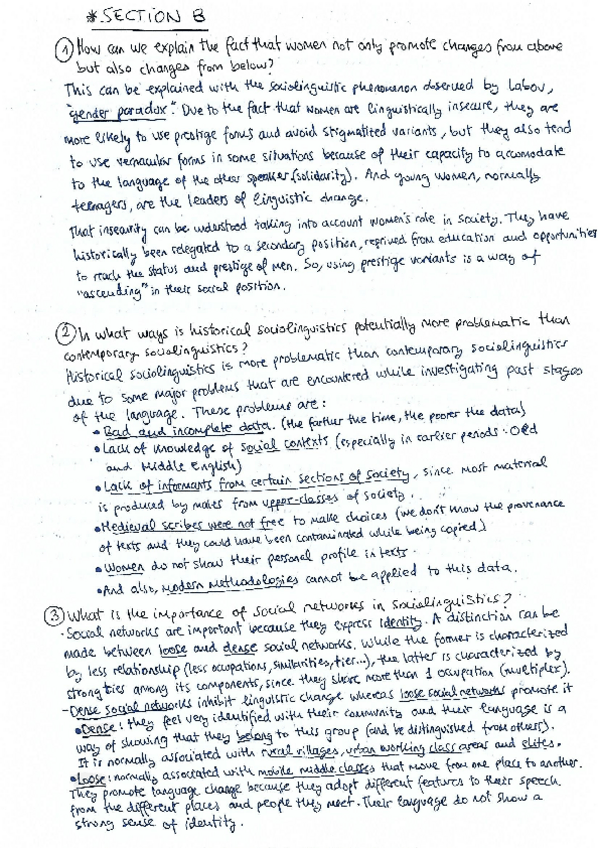 * SECTION B
① How can we explain the fact that women not only promote changes from above
but also changes from below?
This can be explained with the sociolinguistic phenomenon observed by Labov,
"gender paradox". Due to the fact that women are linguistically insecure, they are
more likely to use prestige forms and avoid stigmatized variants, but they also tend
to use vernacular forms in some situations because of their capacity to accomodate
to the language of the other speaker (solidarity). And young women, normally
teenagers, are the leaders of linguistic change.
That insecurity can be understood talking into account women's role in society. They have
historically been relegated to a secondary position, reprived from education and opportunities
to reach the status and prestige of men. So, using prestige variants is a way of
"ascending" in their social position.
② In what ways is historical sociolinguistics potentially more problematic than
contemporary sociolinguistics?
Historical sociolinguistics is more problematic than contemporary sociolinguistics
due to some major problems that are encountered while investigating past stages
of the language. These problems are:
• Bad and incomplete data. (the farther the time, the poorer the data)
• Lack of knowledge of social contexts (especially in earlier periods: Old
and Middle English)
• Lack of informants from certain sections of society, since most material
is produced by males from upper-classes of society.
• Medieval scribes were not free to make choices (we don't know the provenance
of texts and they could have been contaminated while being copied)
• Women do not show their personal profile in texts.
• And also, modern methodologies cannot be applied to this data.
③ What is the importance of social networks in sociolinguistics?
- Social networks are important because they express identity. A distinction can be
made between loose and dense social networks. While the former is characterized
by less relationship (less ocupations, similarities, ties...), the latter is characterized by
strong ties among its components, since they share more than 1 ocupation (multiplex).
- Dense social networks inhibit linguistic change whereas loose social networks promote it
• Dense: they feel very identified with their community and their language is a
way of showing that they belong to this group (and be distinguished from others).
It is normally associated with rural villages, urban working class areas and elites.
• Loose: normally associated with mobile middle classes that move from one place to another.
They promote language change because they adopt different features to their speech
from the different places and people they meet. Their language do not show a
strong sense of identity.